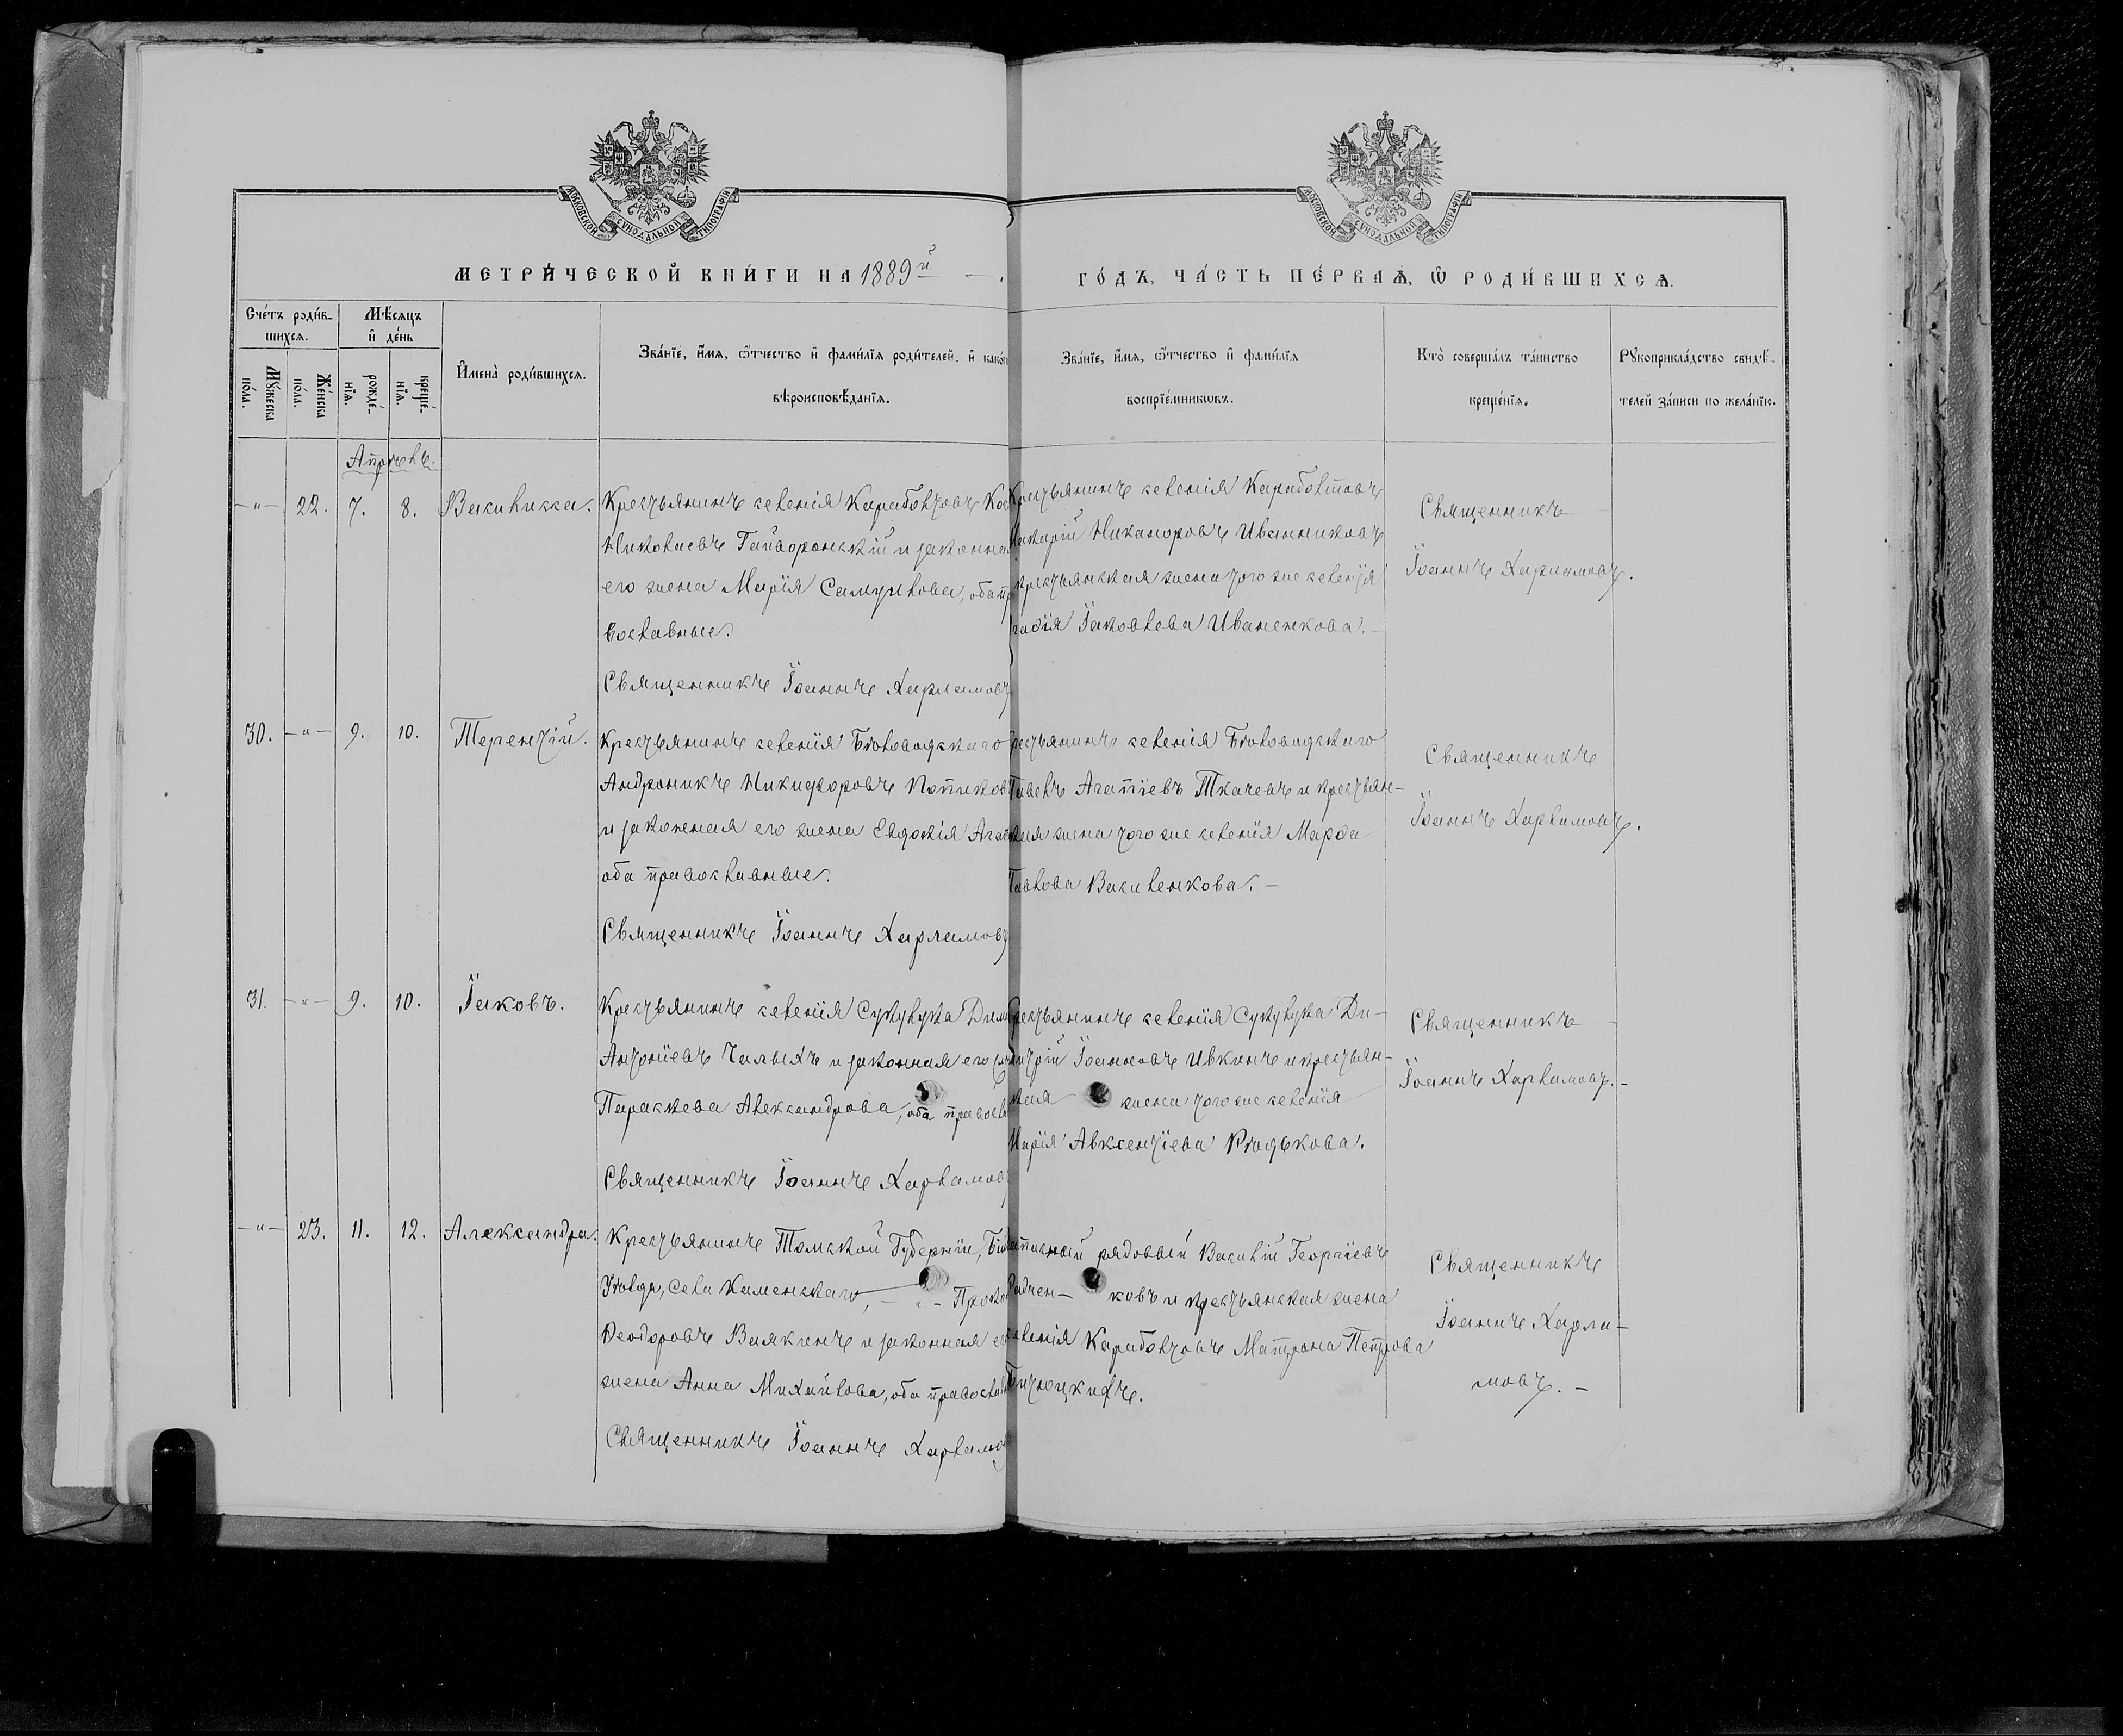 МОСКОВСКОЙ СУНОДАЛЬНОЙ ТИПОГРАФІИ
МОСКОВСКОЙ СУНОДАЛЬНОЙ ТИПОГРАФІИ
МЕТРИ́ЧЕСКОЙ КНИ́ГИ НА 1889й — .
ГО́ДЪ, ЧА́СТЬ ПЕ́РВАѦ, Ѡ҆ РОДИ́ВШИХСѦ.
Сче́тъ роди́в-
шихсѧ.
Мꙋ́жеска
по́ла.
Же́нска
по́ла.
Мѣ́сѧцъ
и҆ де́нь
рожде́-
нїѧ.
креще́-
нїѧ.
И҆мена̀ роди́вшихсѧ.
Зва́нїе, и҆́мѧ, ѻ҆́тчество и҆ фами́лїѧ роди́телей, и҆ како́гѡ
вѣроисповѣ́данїѧ.
Зва́нїе, и҆́мѧ, ѻ҆́тчество и҆ фами́лїѧ
воспрїе́мникѡвъ.
Кто̀ соверша́лъ та́инство
креще́нїѧ.
Рꙋкоприкла́дство свидѣ́-
телей за́писи по жела́нїю.
Апрѣль.
—"— 22. 7. 8. Василисса.
Крестьянинъ селенія Карабовтовъ
Николаевъ Гайворонскій и законная
его жена Марія Самуилова, оба пра
вославные.
Священникъ Іоаннъ Харламовъ
Крестьянинъ селенія Карабовтовъ
Макарій Никаноровъ Иванниковъ
крестьянская жена того же селенія
Іаковлева Иваненкова. —
Священникъ
Іоаннъ Харламовъ.
30. —"— 9. 10. Терентій.
Крестьянинъ селенія Бѣловодскаго
Андроникъ Никифоровъ Попиков
и законная его жена Евдокія Агап
оба православные.
Священникъ Іоаннъ Харламовъ
Крестьянинъ селенія Бѣловодскаго
Павелъ Агапіевъ Ткачевъ и крестьян-
ская жена того же селенія Марѳа
Павлова Василенкова. —
Священникъ
Іоаннъ Харламовъ.
31. —"— 9. 10. Іаковъ.
Крестьянинъ селенія Сукулука Дими
Антоніевъ Чалыхъ и законная его
Параскева Александрова, оба правосла
Священникъ Іоаннъ Харламовъ
Крестьянинъ селенія Сукулука Ди-
митрій Іоанновъ Ивкинъ и крестьян-
ская жена того же селенія
Марія Авксентіева Рѣдькова.
Священникъ
Іоаннъ Харламовъ. —
—"— 23. 11. 12. Александра.
Крестьянинъ Томской Губерніи, Бій
Уѣзда, села Каменскаго, — " — Проко
Ѳеодоровъ Вяткинъ и законная его
жена Анна Михайлова, оба православ
Священникъ Іоаннъ Харламов
рядовый Василій Георгіевъ
ковъ и крестьянская жена
селенія Карабовтовъ Матрона Петрова
Священникъ
Іоаннъ Харла-
мовъ. —